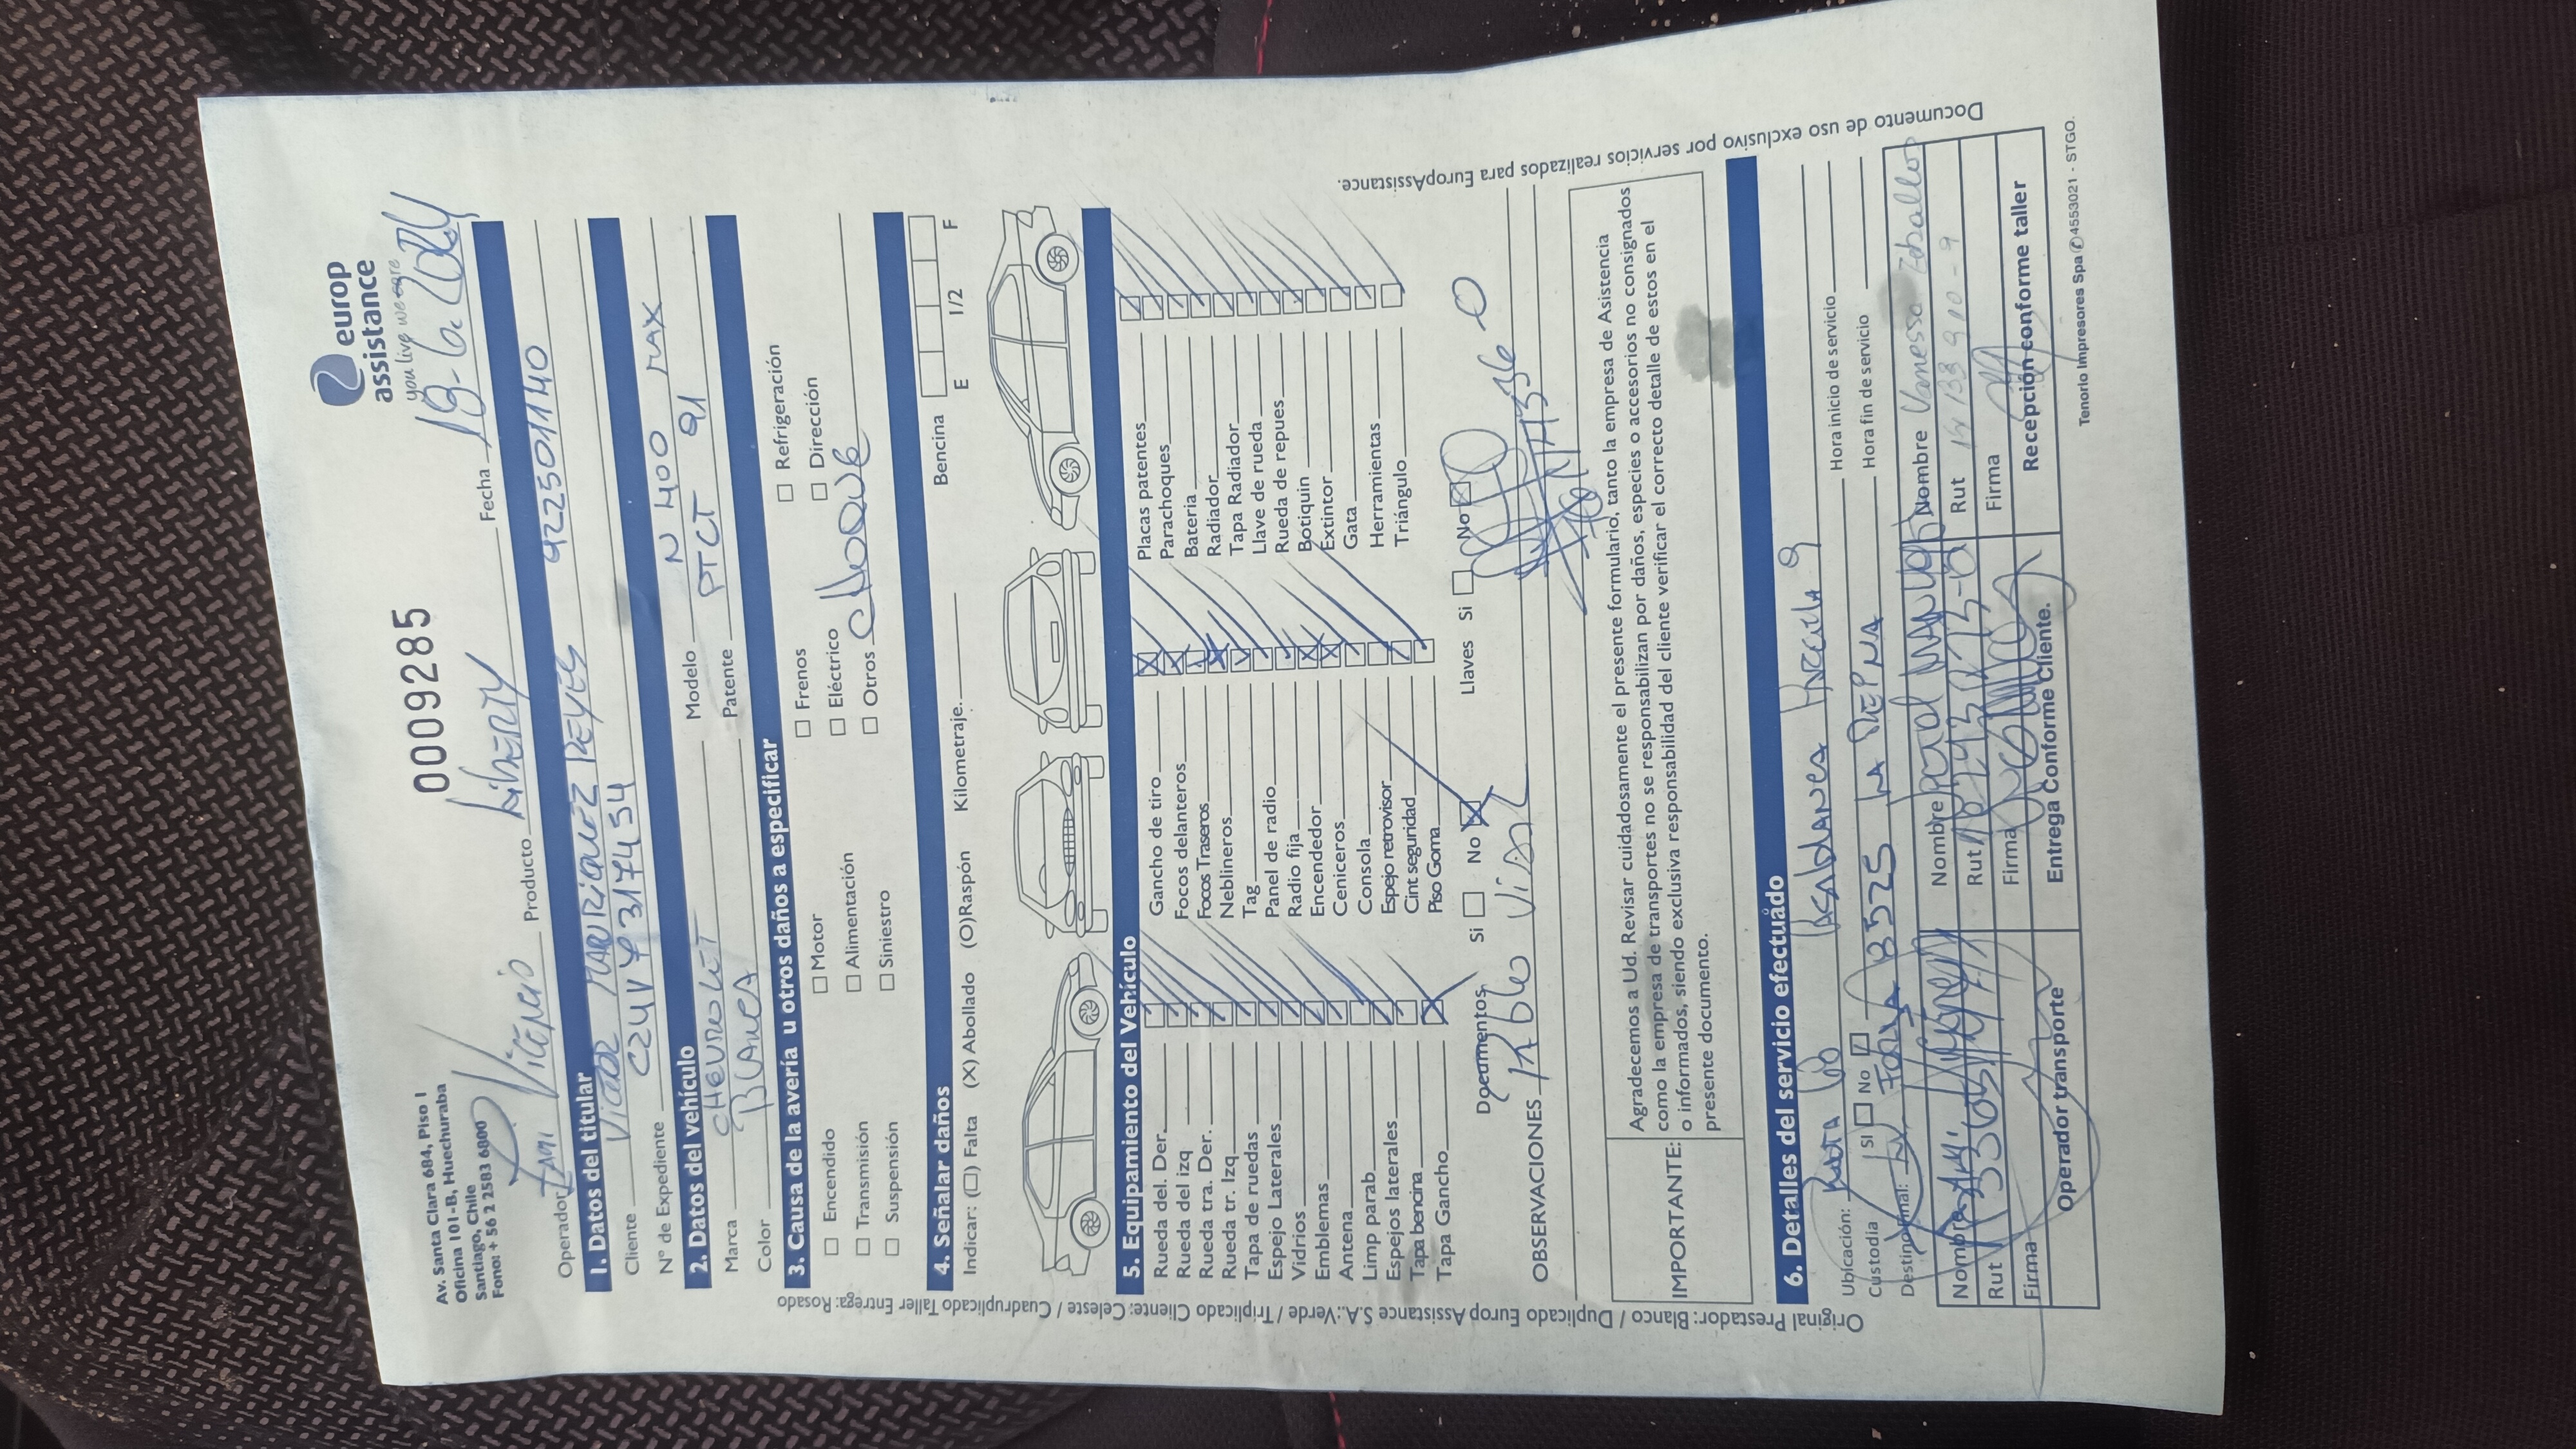 Av. Santa Clara 684, Piso 1
Oficina 101-B, Huechuraba
Santiago, Chile
Fono: + 56 2 2583 6800
0009285
europ
assistance
you live we care
Operador Vitencio Producto Liberty Fecha 13-6-2024
1. Datos del titular
Cliente Victor Manriquez Reyes 922501140
N° de Expediente C24V493174534
2. Datos del vehículo
Marca CHEVROLET Modelo N400 MAX
Color BLANCA Patente PTCT 91
3. Causa de la avería u otros daños a especificar
Encendido Motor Frenos Refrigeración
Transmisión Alimentación Eléctrico Dirección
Suspensión Siniestro Otros choque
4. Señalar daños
Indicar: (□) Falta (X) Abollado (O)Raspón Kilometraje. Bencina E 1/2 F
5. Equipamiento del Vehículo
Rueda del. Der. Gancho de tiro Placas patentes
Rueda del izq Focos delanteros Parachoques
Rueda tra. Der. Focos Traseros Bateria
Rueda tr. Izq Neblineros Radiador
Tapa de ruedas Tag Tapa Radiador
Espejo Laterales Panel de radio Llave de rueda
Vidrios Radio fija Rueda de repues
Emblemas Encendedor Botiquin
Antena Ceniceros Extintor
Limp parab Consola Gata
Espejos laterales Espejo retrovisor Herramientas
Tapa bencina Cint seguridad Triángulo
Tapa Gancho Piso Goma
Documentos Si No Llaves Si No
OBSERVACIONES Pablo Vidal
IMPORTANTE: Agradecemos a Ud. Revisar cuidadosamente el presente formulario, tanto la empresa de Asistencia
como la empresa de transportes no se responsabilizan por daños, especies o accesorios no consignados
o informados, siendo exclusiva responsabilidad del cliente verificar el correcto detalle de estos en el
presente documento.
6. Detalles del servicio efectuado
Ubicación: Ruta 60 Parcela 9 Hora inicio de servicio
Custodia SI No Hora fin de servicio
Destino Final: 8525 LA REINA
Nombre Nombre Nombre Vanessa Zeballos
Rut Rut Rut
Firma Firma Firma
Operador transporte Entrega Conforme Cliente. Recepción conforme taller
Original Prestador: Blanco / Duplicado Europ Assistance S.A.: Verde / Triplicado Cliente: Celeste / Cuadruplicado Taller Entrega: Rosado
Documento de uso exclusivo por servicios realizados para EuropAssistance.
Tenorio Impresores Spa ✆4553021 - STGO.